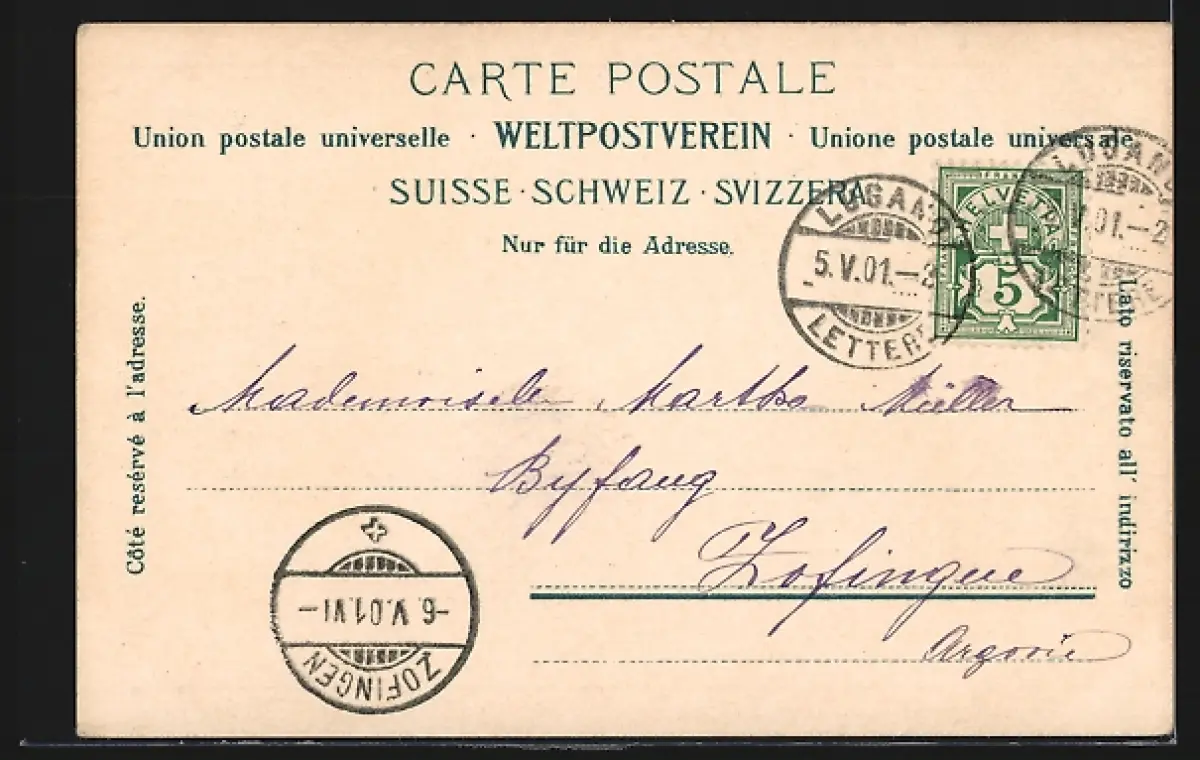 CARTE POSTALE
Union postale universelle · WELTPOSTVEREIN · Unione postale universale
SUISSE · SCHWEIZ · SVIZZERA
Nur für die Adresse.
LUGANO
5.V.01.—
LETTERE
FRANCO
HELVETIA
5
LUGANO
V.01.—2
LETTERE
Côté resérvé à l'adresse.
Lato riservato all' indirizzo
Mademoiselle Martha Müller
Byfang
Zofingue
Argovie
-6.V.01.VI-
ZOFINGEN